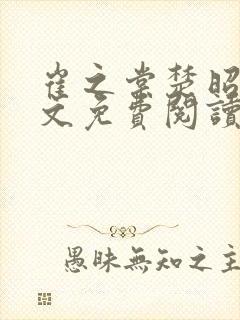 崔之棠楚昭
文免費閱讀
愚昧無知之主